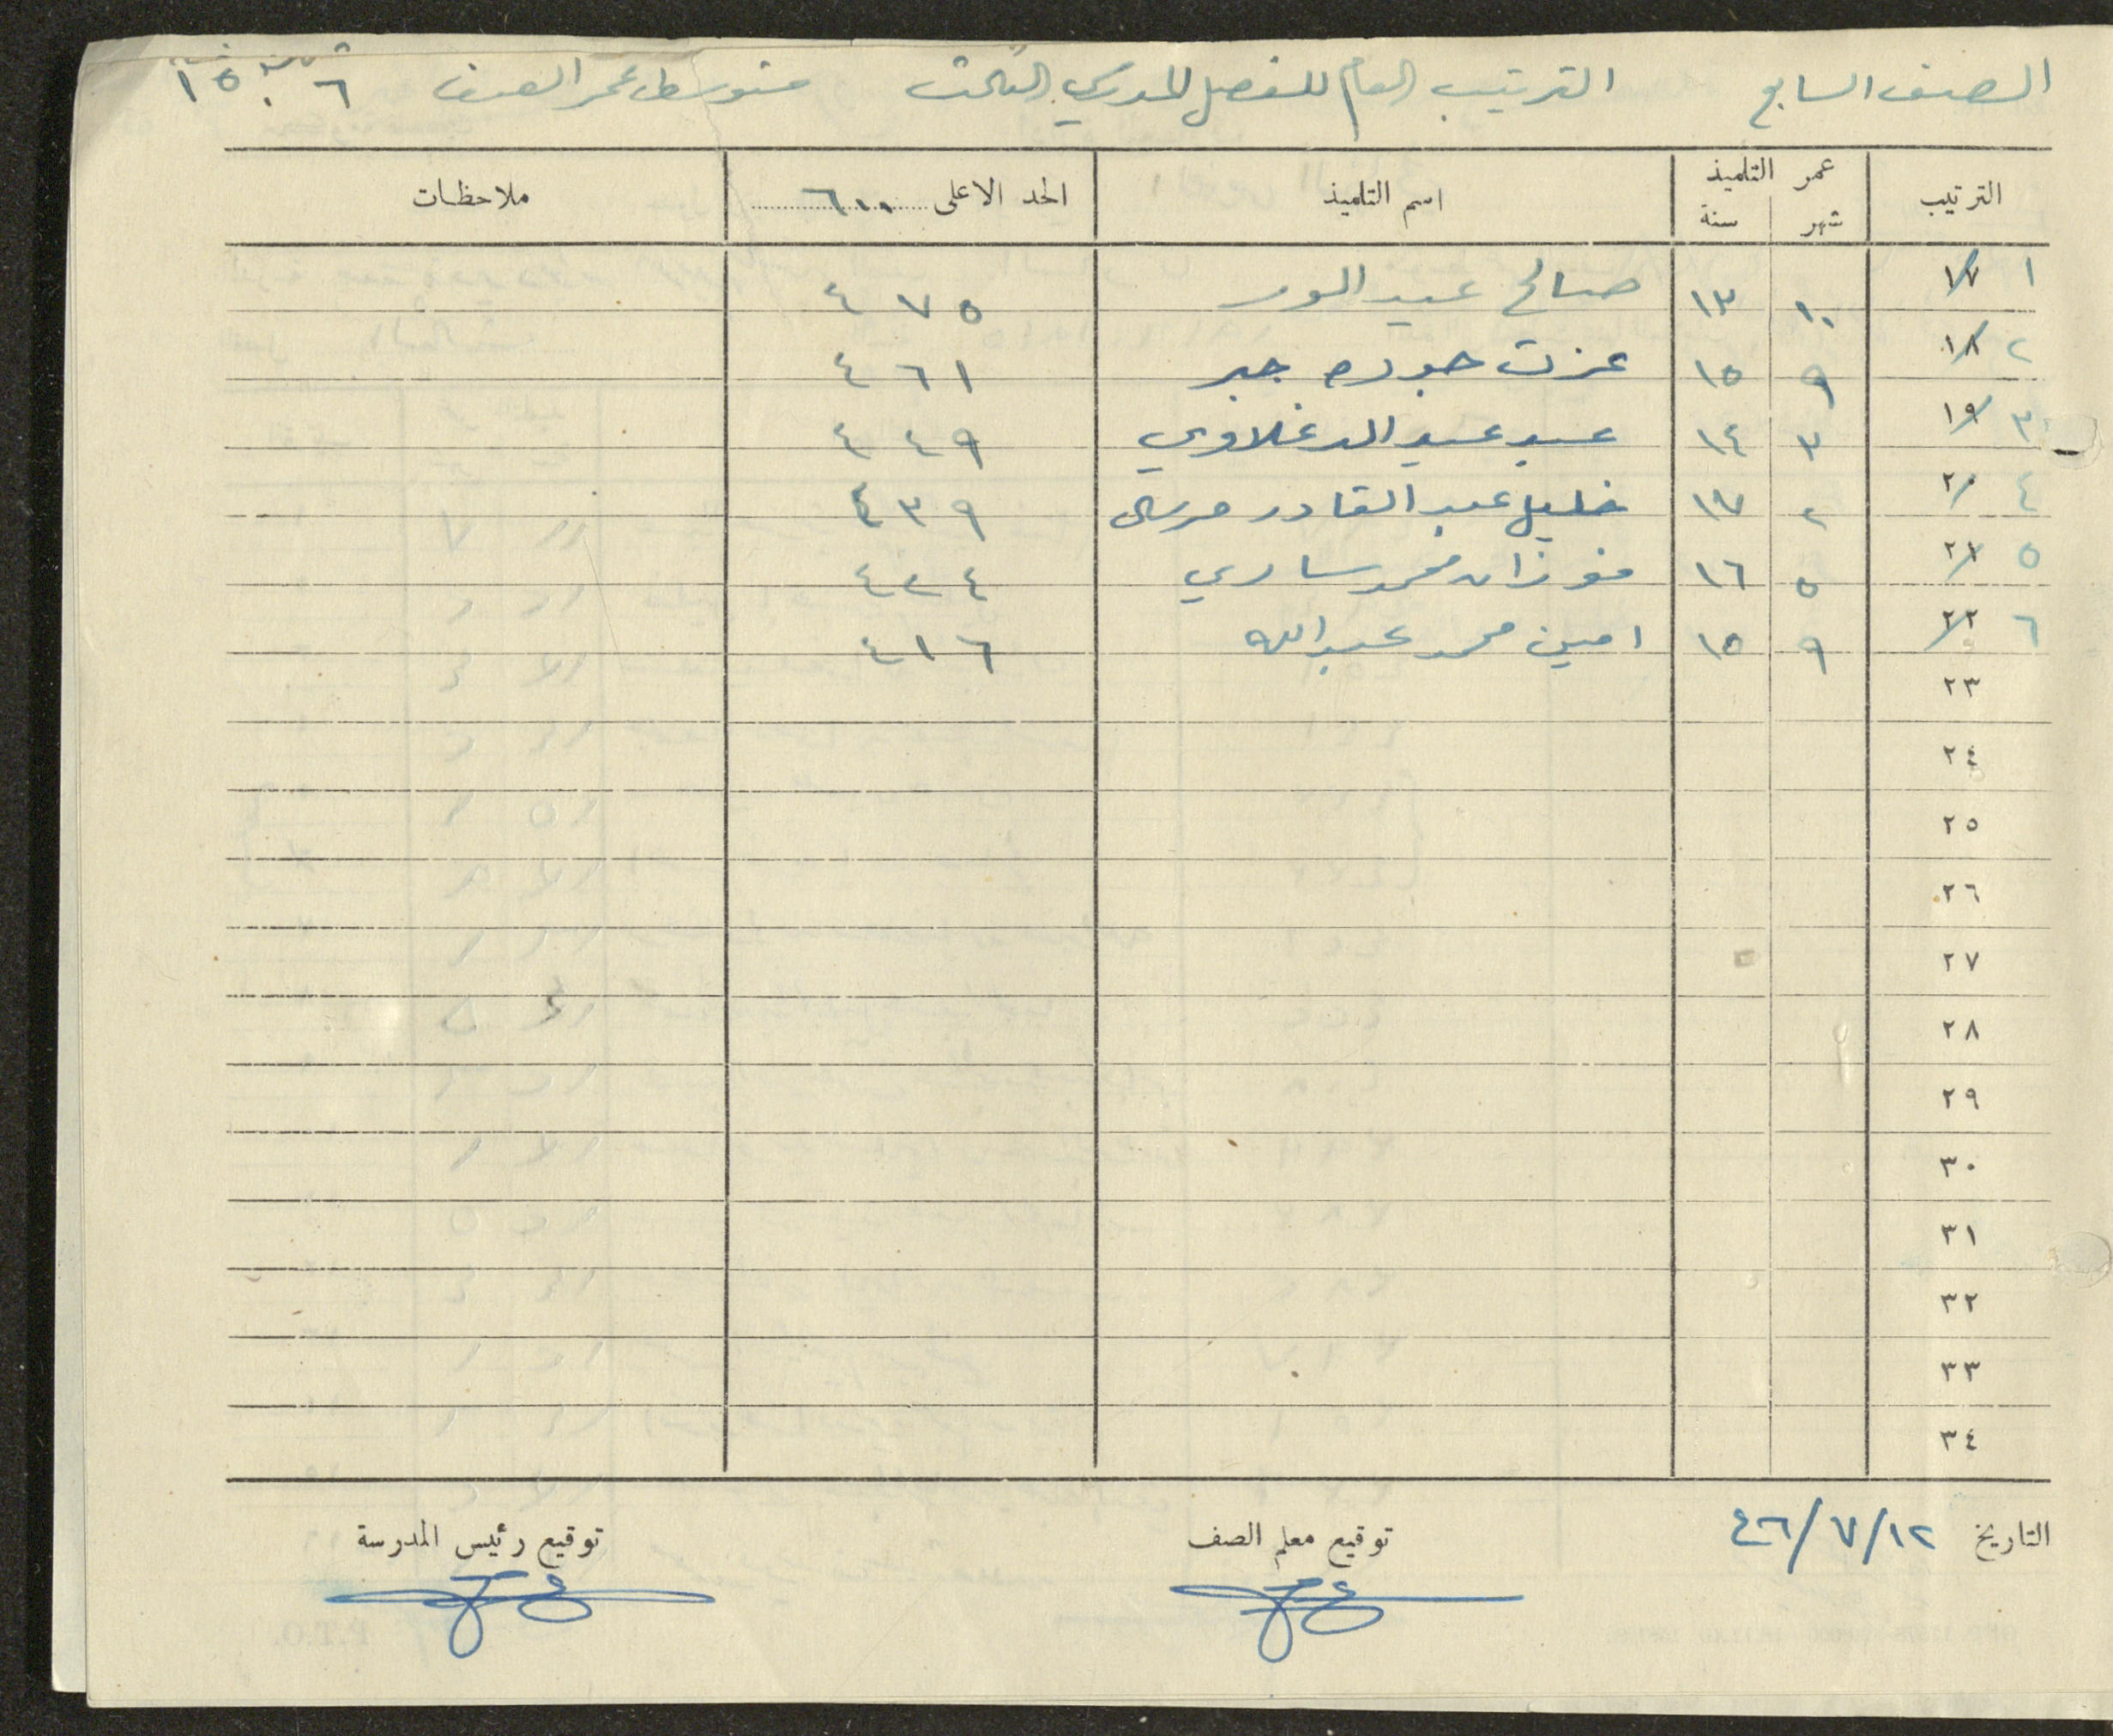 الصف السابع الترتيب العام للفصل المدرسي الثالث متوسط عمر الصف ٦ ١٥
الترتيب عمر التلميذ اسم التلميذ الحد الاعلى ٦٠٠ ملاحظات
شهر سنة
١ ١٧ ١٠ ١٣ صالح عبد ٤٧٥
٢ ١٨ ٩ ١٥ عزت جوده جبر ٤٦١
٣ ١٩ ٣ ١٤ عبد الدغلاوي ٤٤٩
٤ ٢٠ ٢ ١٧ خليل عبد القادر مرسي ٤٣٩
٥ ٢١ ٥ ١٦ فوزان محمد ساري ٤٢٤
٦ ٢٢ ٩ ١٥ امين محمد عبدالله ٤١٦
٢٣
٢٤
٢٥
٢٦
٢٧
٢٨
٢٩
٣٠
٣١
٣٢
٣٣
٣٤
التاريخ ١٢/٧/٤٦ توقيع معلم الصف توقيع رئيس المدرسة